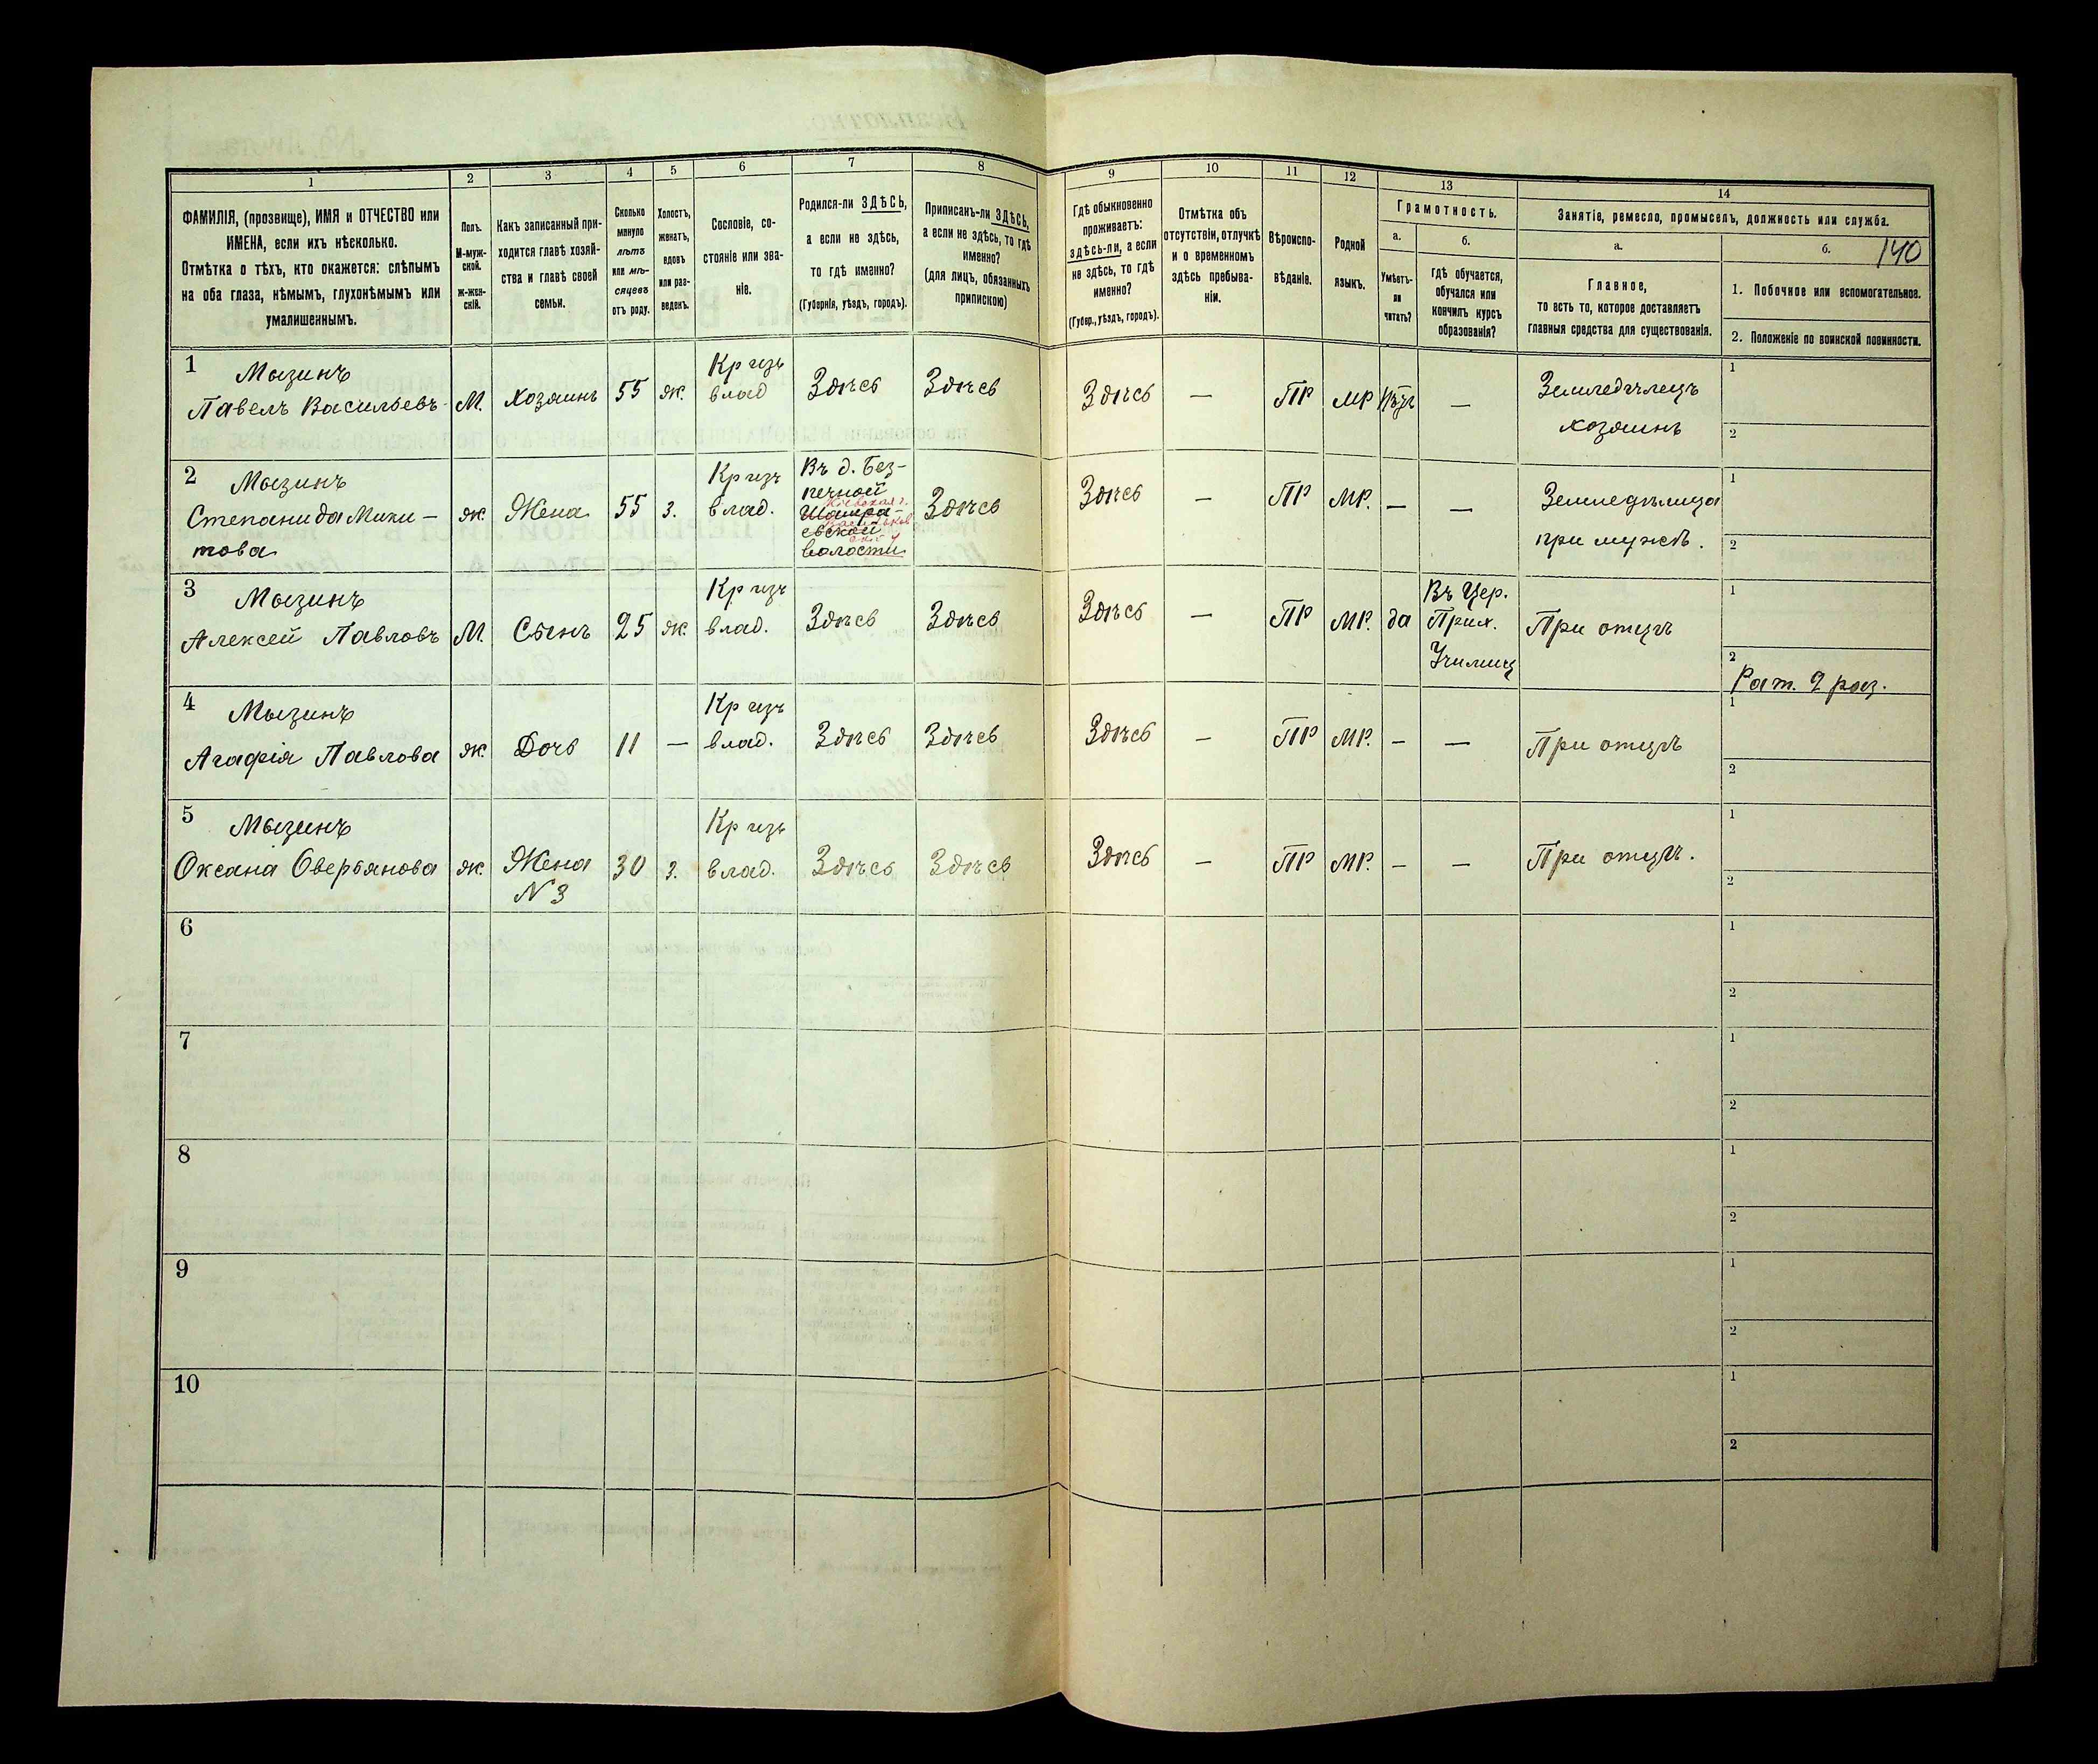 1
2
3
4
5
6
7
8
9
10
11
12
13
14
ФАМИЛІЯ, (прозвище), ИМЯ и ОТЧЕСТВО или
ИМЕНА, если ихъ нѣсколько.
Отмѣтка о тѣхъ, кто окажется: слѣпымъ
на оба глаза, нѣмымъ, глухонѣмымъ или
умалишеннымъ.
Полъ.
М-муж-
ской.
ж-жен-
скій.
Какъ записанный при-
ходится главѣ хозяй-
ства и главѣ своей
семьи.
Сколько
минуло
лѣтъ
или мѣ-
сяцевъ
отъ роду.
Холостъ,
женатъ,
вдовъ
или раз-
веденъ.
Сословіе, со-
стояніе или зва-
ніе.
Родился-ли ЗДѢСЬ,
а если не здѣсь,
то гдѣ именно?
(Губернія, уѣздъ, городъ).
Приписанъ-ли ЗДѢСЬ,
а если не здѣсь, то гдѣ
именно?
(для лицъ, обязанныхъ
припискою)
Гдѣ обыкновенно
проживаетъ:
здѣсь-ли, а если
не здѣсь, то гдѣ
именно?
(Губер., уѣздъ, городъ).
Отмѣтка объ
отсутствіи, отлучкѣ
и о временномъ
здѣсь пребыва-
ніи.
Вѣроиспо-
вѣданіе.
Родной
языкъ.
Грамотность.
а.
Умѣетъ-
ли
читать?
б.
гдѣ обучается,
обучался или
кончилъ курсъ
образованія?
Занятіе, ремесло, промыселъ, должность или служба.
а.
Главное,
то есть то, которое доставляетъ
главныя средства для существованія.
б.
140
1. Побочное или вспомогательное.
2. Положеніе по воинской повинности.
1
Мызинъ
Павелъ Васильевъ
М.
хозяинъ
55
ж.
Кр изъ
влад
Здѣсь
Здѣсь
Здѣсь
—
ПР
МР
—
Земледѣлецъ
хозяинъ
1
2
2
Мызинъ
Степанида Мики-
това
ж.
Жена
55
з.
Кр изъ
влад.
Въ д. Без-
печной
Шамра-
евской
волости
Здѣсь
Здѣсь
—
ПР
МР.
—
—
Земледѣлица
при мужѣ.
1
2
3
Мызинъ
Алексей Павловъ
М.
Сынъ
25
ж.
Кр изъ
влад.
Здѣсь
Здѣсь
Здѣсь
—
ПР
МР.
да
Въ Цер.
Прих.
Училищ
При отцѣ
1
2
Рат. 2 раз.
4
Мызинъ
Агафія Павлова
ж.
Дочь
11
—
Кр изъ
влад.
Здѣсь
Здѣсь
Здѣсь
—
ПР
МР.
—
—
При отцѣ
1
2
5
Мызинъ
Оксана Оверьянова
ж.
Жена
N 3
30
з.
Кр изъ
влад.
Здѣсь
Здѣсь
Здѣсь
—
ПР
МР.
—
—
При отцѣ.
1
2
6
1
2
7
1
2
8
1
2
9
1
2
10
1
2